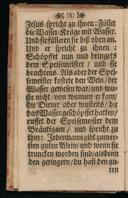 Jesus spricht zu ihnen: Füllet
die Wasser-Krüge mit Wasser.
Und sie fülleten sie bis oben an.
Und er spricht zu ihnen:
Schöpffet nun und bringets
dem Speisemeister / und sie
brachtens. Als aber der Speise-
meister kostete den Wein / der
Wasser gewesen war / und wu-
ste nicht / von wannen er kam /
die Diener aber wustens / die
das Wasser geschöpffet hatten /
ruffet der Speisemeister dem
Bräutigam / und spricht zu
ihm: Jedermann gibt zum er-
sten guten Wein / und wenn sie
truncken worden sind / alsdenn
den geringern / du hast den gu-
ten